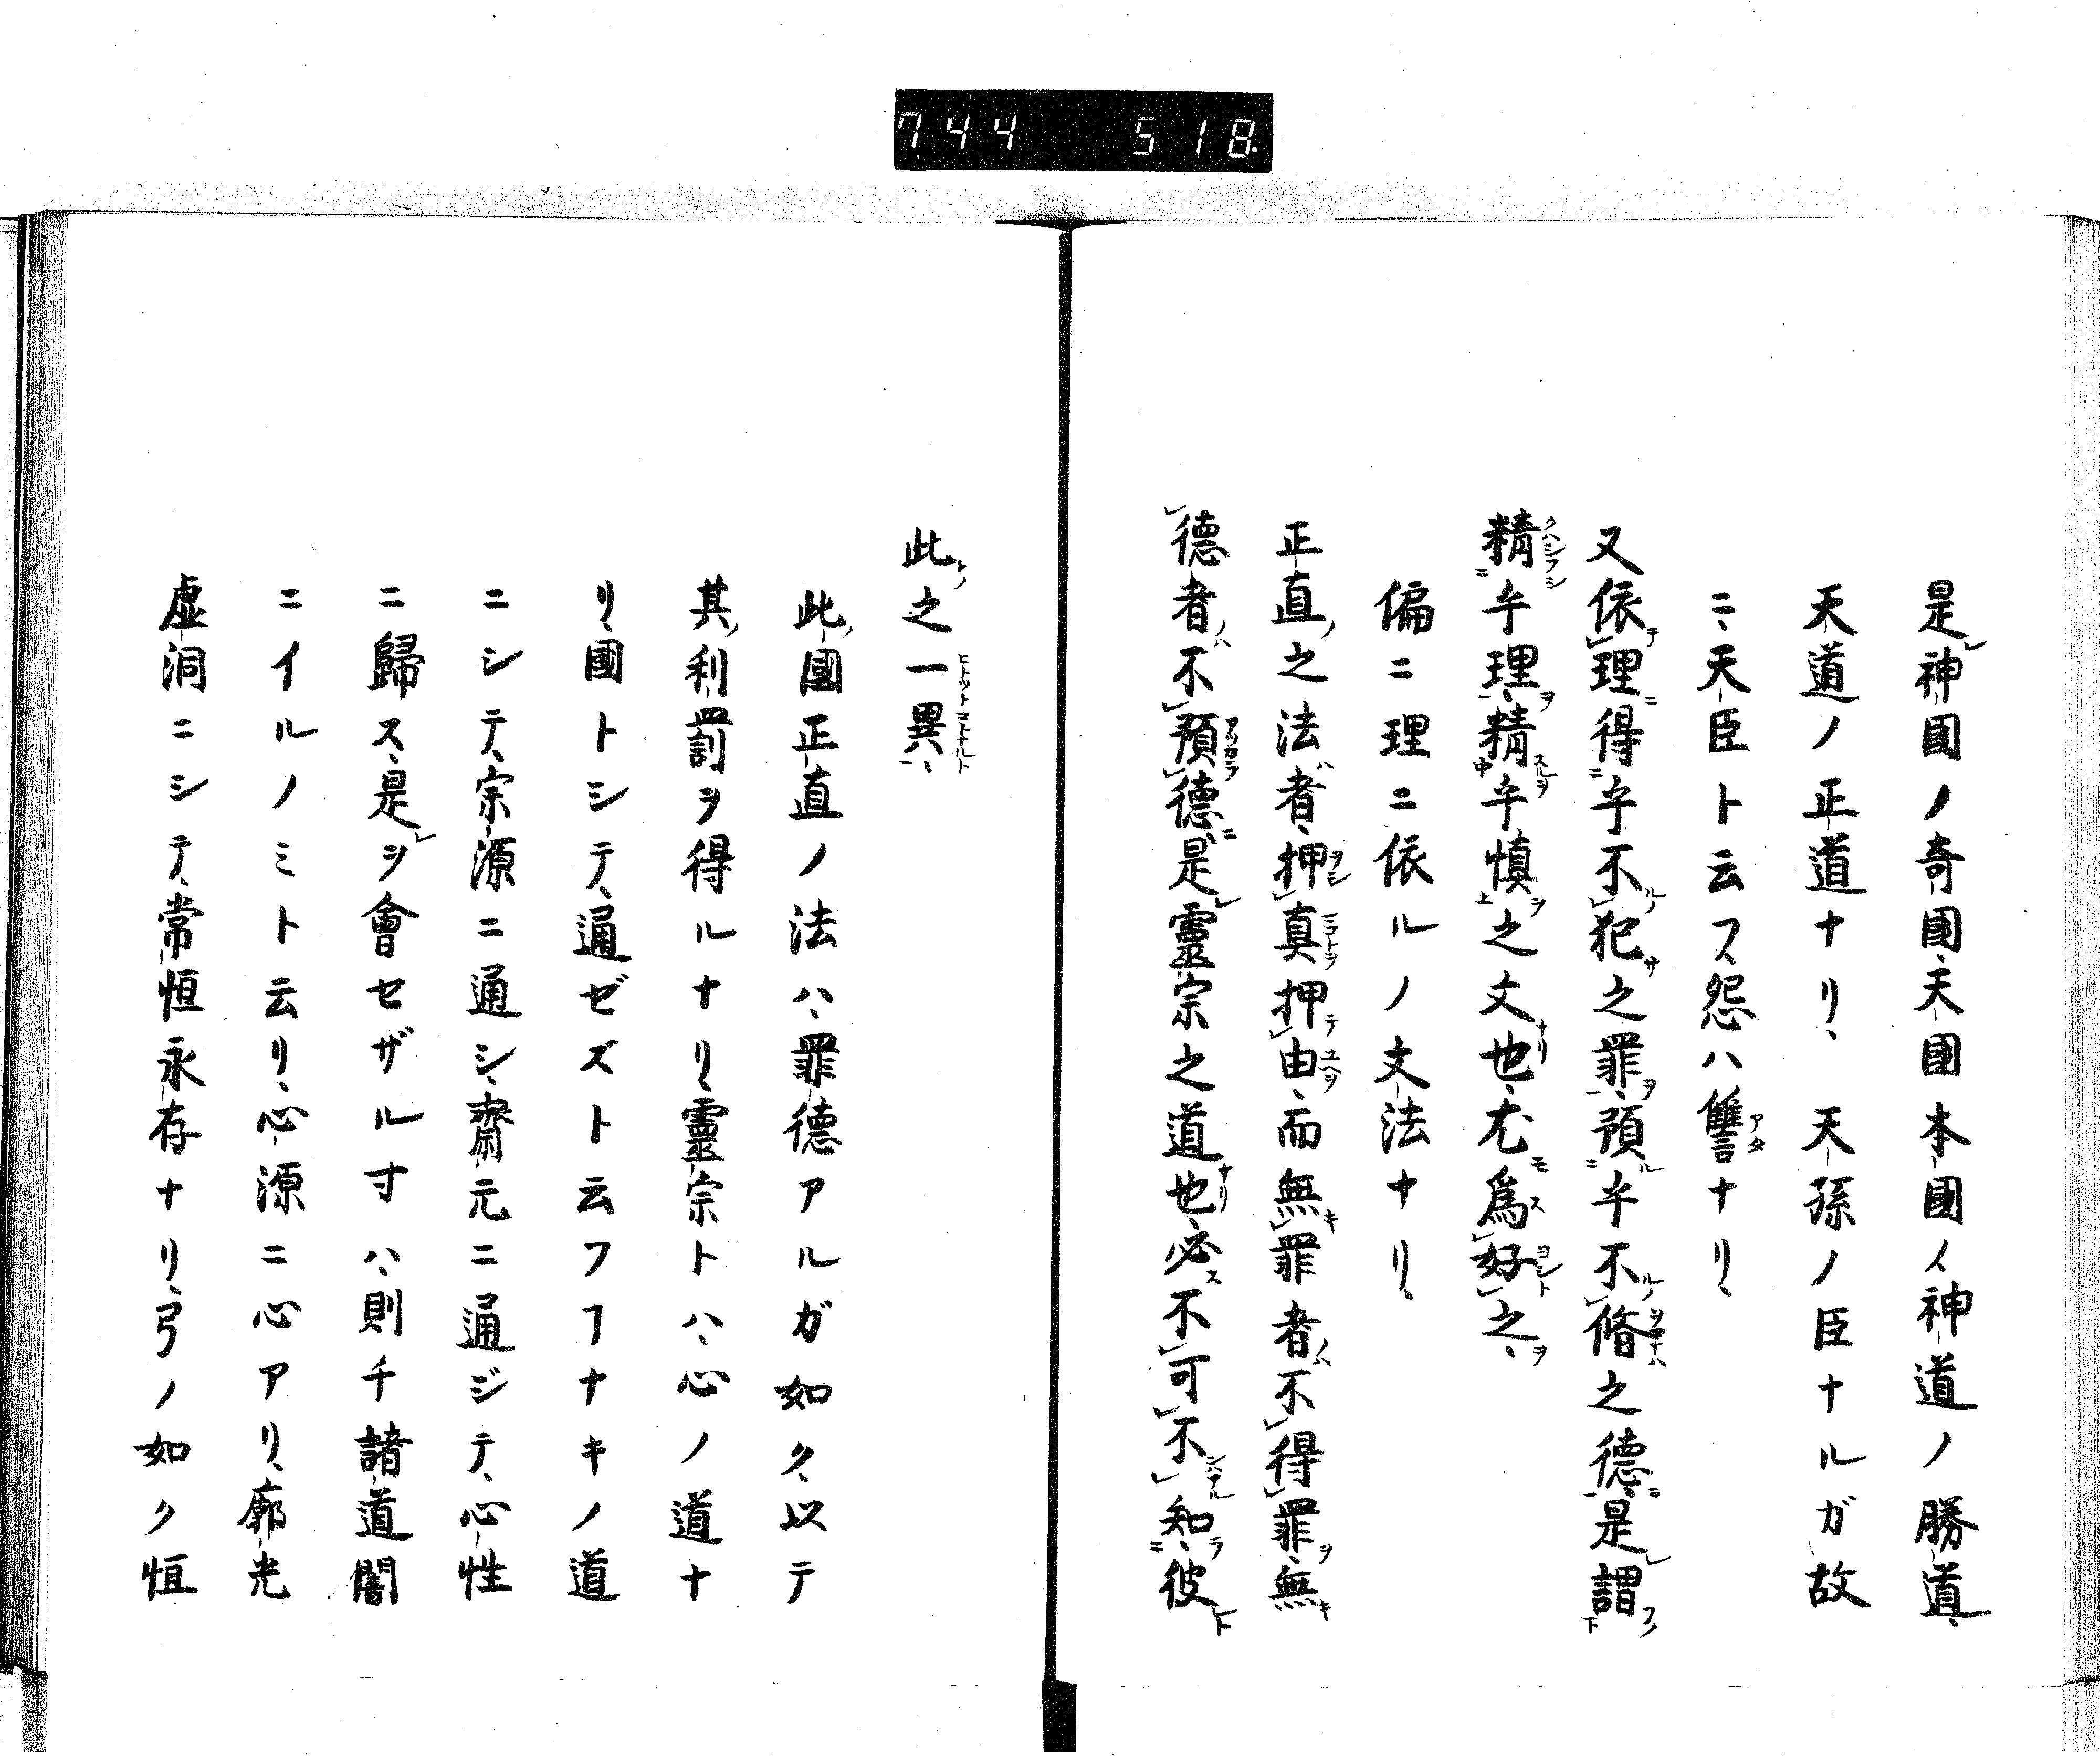 744 518
是レ神國ノ奇國、天國本國ノ神道ノ勝道、
天道ノ正道ナリ、天孫ノ臣ナルガ故
ニ、天臣ト云フ、怨ハ讐ナリ、
又依理得乎不犯之罪、預乎不脩之德、是謂
精乎理、精乎慎之文也、尤爲好之、
偏ニ理ニ依ルノ文法ナリ、
正直之法者、押真押由、而無罪者不得罪、無
德者不預德、是靈宗之道也、必不可不知、彼
此之一異、
此國正直ノ法ハ、罪德アルガ如ク、以テ
其利罰ヲ得ルナリ、靈宗トハ、心ノ道ナ
リ、國トシテ、通ゼズト云フヿナキノ道
ニシテ、宗源ニ通シ、齋元ニ通ジテ、心性
ニ歸ス、是レヲ會セザル寸ハ、則チ諸道闇
ニイルノミト云リ、心源ニ心アリ、廓光
虚洞ニシテ、常恒永存ナリ、弓ノ如ク恒